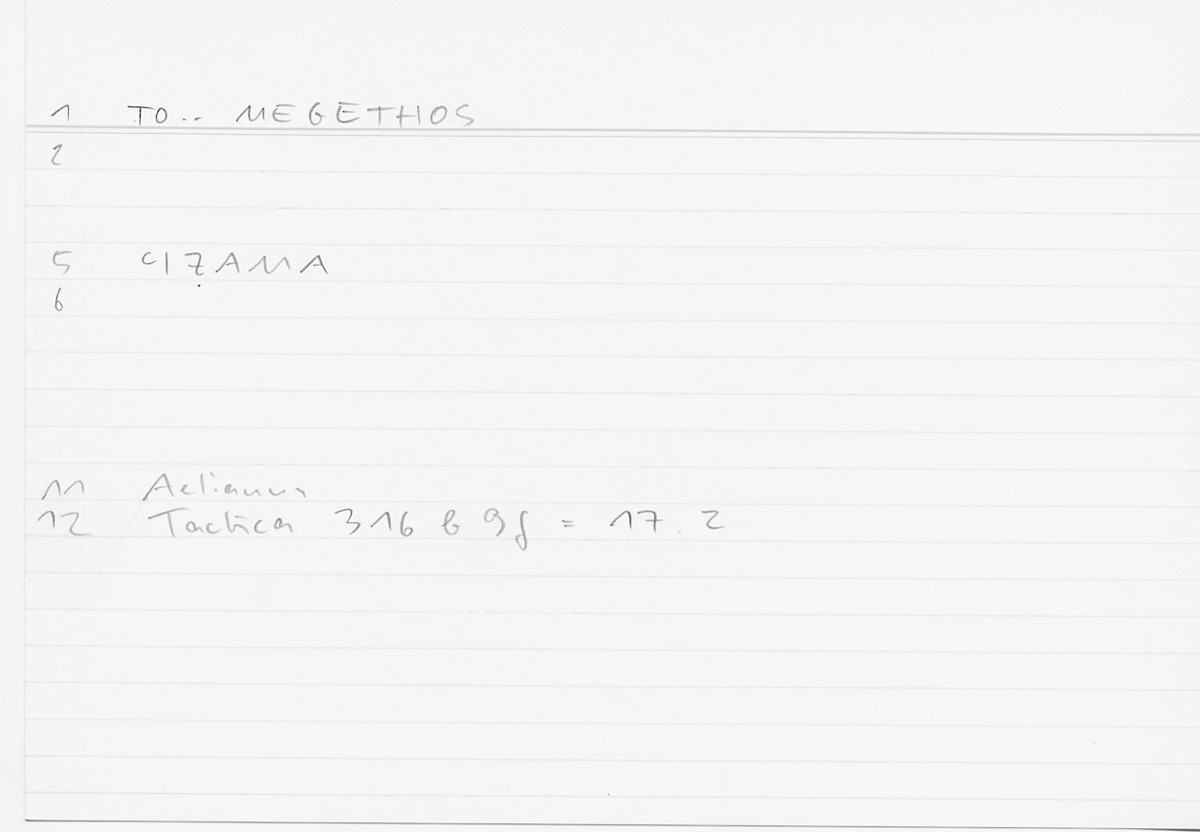 1 TO.. MEGETHOS
2
5 ʿIẒAMA
6
11 Aelianus
12 Tactica 316 b 9f = 17.2